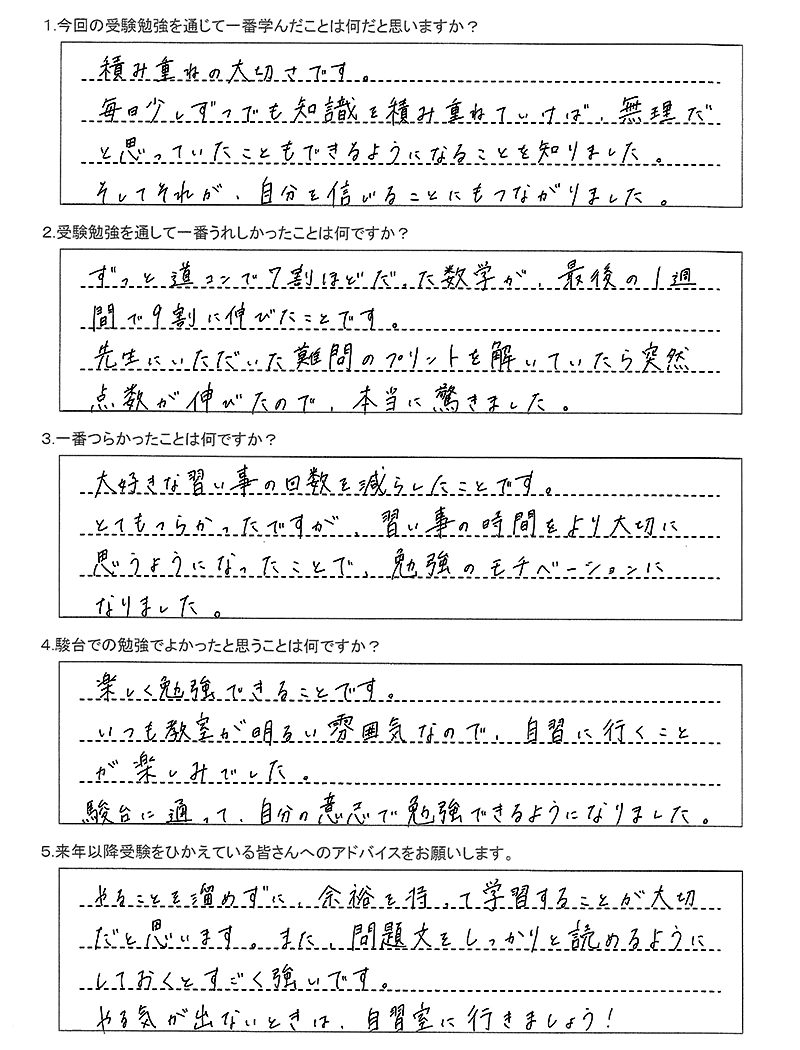 1.今回の受験勉強を通じて一番学んだことは何だと思いますか？
積み重ねの大切さです。
毎日少しずつでも知識を積み重ねていけば、無理だ
と思っていたこともできるようになることを知りました。
そしてそれが、自分を信じることにもつながりました。
2.受験勉強を通して一番うれしかったことは何ですか？
ずっと道コンで7割ほどだった数学が、最後の1週
間で9割に伸びたことです。
先生にいただいた難問のプリントを解いていたら突然
点数が伸びたので、本当に驚きました。
3.一番つらかったことは何ですか？
大好きな習い事の回数を減らしたことです。
とてもつらかったですが、習い事の時間をより大切に
思うようになったことで、勉強のモチベーションに
なりました。
4.駿台での勉強でよかったと思うことは何ですか？
楽しく勉強できることです。
いつも教室が明るい雰囲気なので、自習に行くこと
が楽しみでした。
駿台に通って、自分の意志で勉強できるようになりました。
5.来年以降受験をひかえている皆さんへのアドバイスをお願いします。
やることを溜めずに、余裕を持って学習することが大切
だと思います。また、問題文をしっかりと読めるように
しておくとすごく強いです。
やる気が出ないときは、自習室に行きましょう!